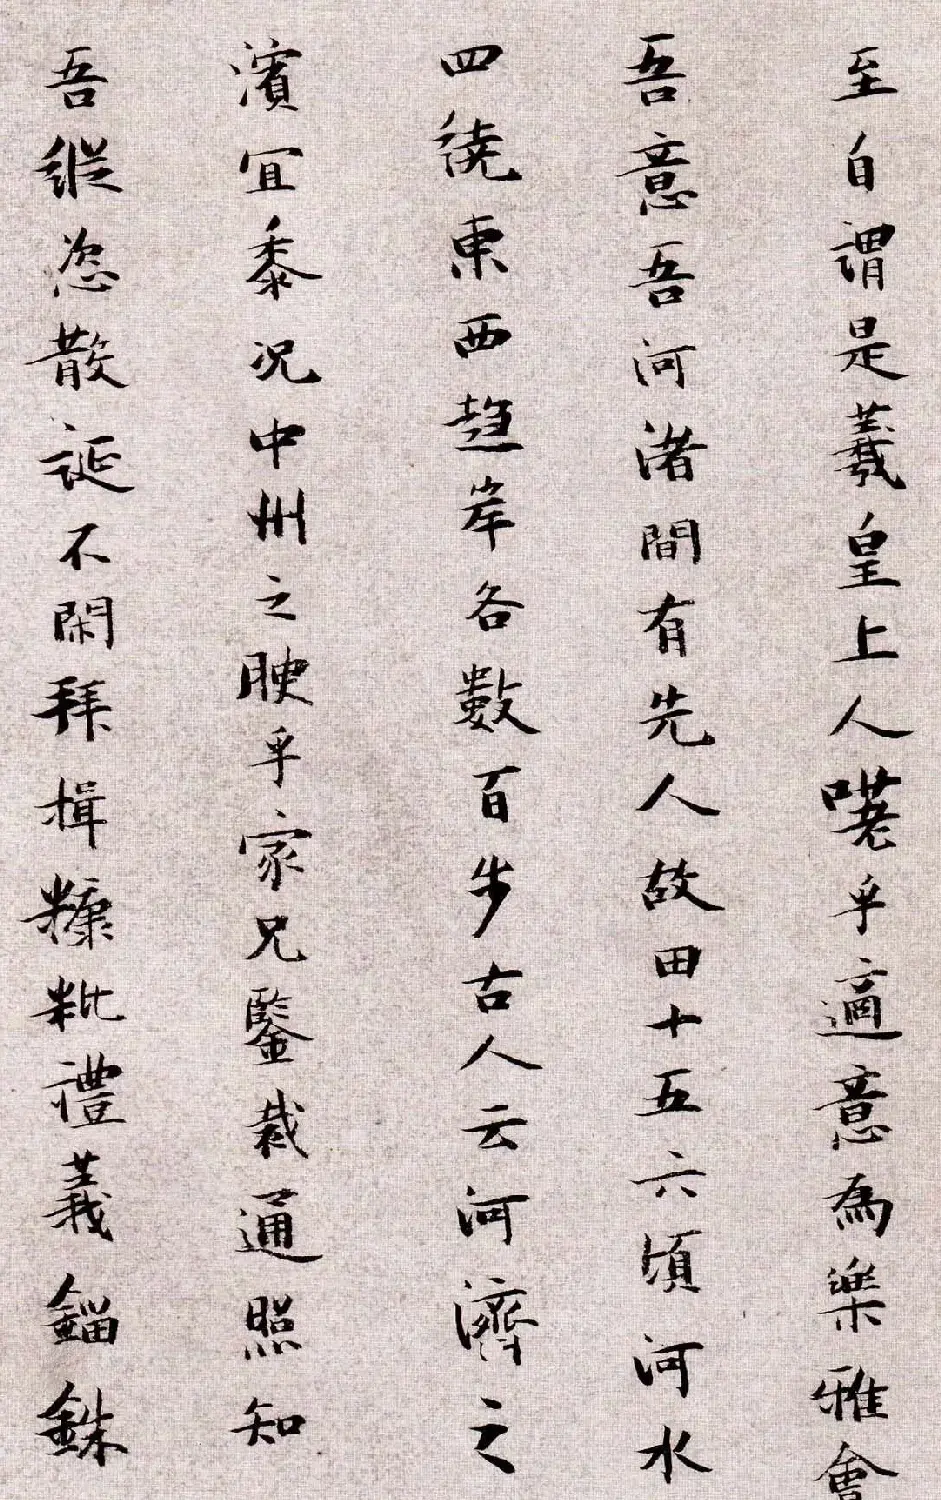 至自謂是羲皇上人嘗乎適意為樂雅會
吾意吾河渚間有先人故田十五六頃河水
四繞東西趍岸各數百步古人云河濟之
濱宜黍況中州之腴乎家兄鑒裁通照知
吾縱恣散誕不閑拜揖糠粃禮義錙銖